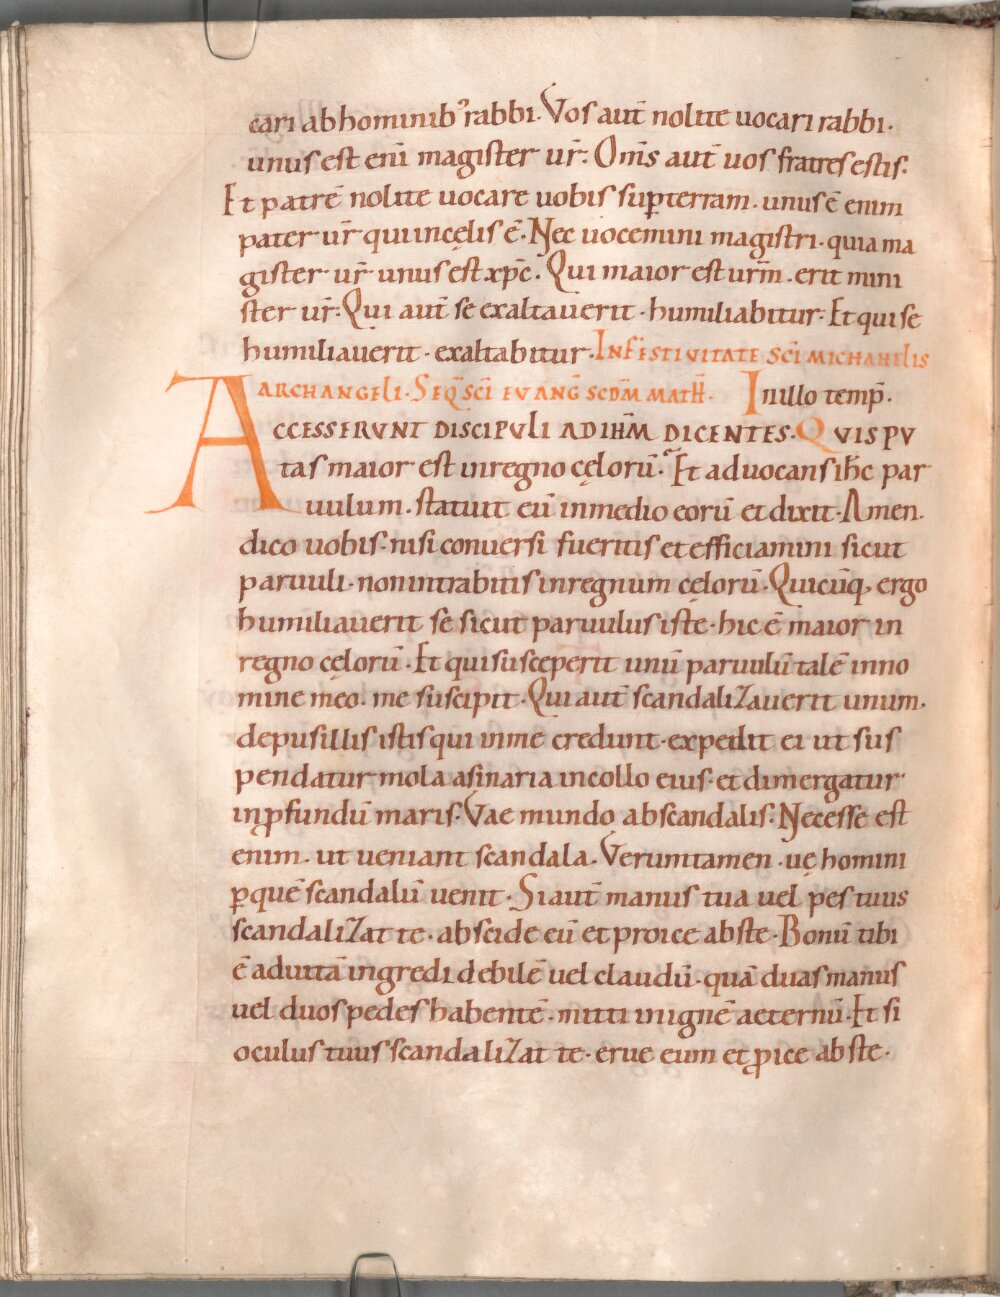 cari ab hominib' rabbi. Vos aut̄ nolite uocari rabbi.
unus est eni̅ magister ur̄. Om̄s aut̄ uos fratres estis.
Et patrē nolite uocare uobis sup̱ terram. unus ē enim
pater ur̄ qui in cęlis ē. Nec uocemini magistri. quia ma
gister ur̄ unus est xp̄c. Qui maior est urm̄. erit mini
ster ur̄. Qui aut̄ se exaltauerit. humiliabitur. Et qui se
humiliauerit. exaltabitur. IN FESTIVITATE SC̄I MICHAHELIS
ARCHANGELI. SEQ̄ SC̄I EVANḠ SCDM̄ MATH̄. In illo temp̄.
ACCESSERVNT DISCIPVLI AD IHM̄ DICENTES. QVIS PV
tas maior est in regno cęlorū. Et aduocans ih̄c par
uulum. statuit eū in medio eorū et dixit. Amen.
dico uobis. nisi conuersi fueritis et efficiamini sicut
paruuli. non intrabitis in regnum cęlorū. Quicūq, ergo
humiliauerit se sicut paruulus iste. hic ē maior in
regno cęlorū. Et qui susceperit unū paruulū talē in no
mine meo. me suscipit. Qui aut̄ scandalizauerit unum.
de pusillis istis qui in me credunt. expedit ei ut sus
pendatur mola asinaria in collo eius. et dimergatur
in ꝓfundū maris. Vae mundo ab scandalis. Necesse est
enim. ut ueniant scandala. Veruntamen. uę homini
ꝑ quē scandalū uenit. Si aut̄ manus tua uel pes tuus
scandalizat te. abscide eū et proice abs te. Bonū tibi
ē ad uitā ingredi debilē uel claudū. quā duas manus
uel duos pedes habentē. mitti in ignē aeternū. Et si
oculus tuus scandalizat te. erue eum et ꝓice abs te.